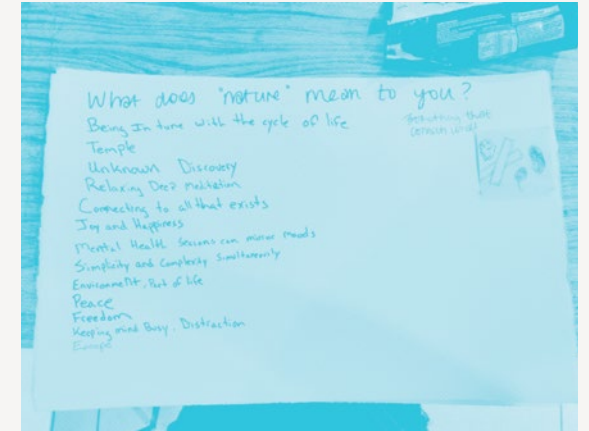 What does "nature" mean to you?
Being In tune with the cycle of life
Temple
Unknown Discovery
Relaxing Deep Meditation
Connecting to all that exists
Joy and Happiness
Mental Health Seasons can mirror moods
Simplicity and Complexity Simultaneously
Environment, Part of life
Peace
Freedom
Keeping mind Busy. Distraction